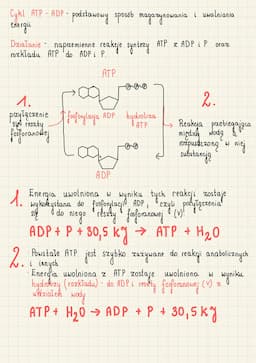 Cykl ATP - ADP - podstawowy sposób magazynowania i uwalniania
energii
Działanie - naprzemienne reakcje syntezy ATP z ADP i P oraz
rozkładu ATP do ADP i P.
ATP
1.
przyłączenie
się reszty
fosforanowej
fosforylacja ADP
hydroliza
ATP
2.
Reakcja przebiegająca
między wodą a
rozpuszczoną w niej
substancją
ADP
1. Energia uwolniona w wyniku tych reakcji zostaje
wykorzystana do fosforylacji ADP, czyli przyłączenia
się do niego reszty fosforanowej (V).
ADP + P + 30,5 kJ → ATP + H₂O
2. Powstałe ATP jest szybko zużywane do reakcji anabolicznych
i innych.
Energia uwolniona z ATP zostaje uwolniona w wyniku
hydrolizy (rozkładu) - do ADP i reszty fosforanowej (V) z
udziałem wody
ATP + H₂O → ADP + P + 30,5 kJ